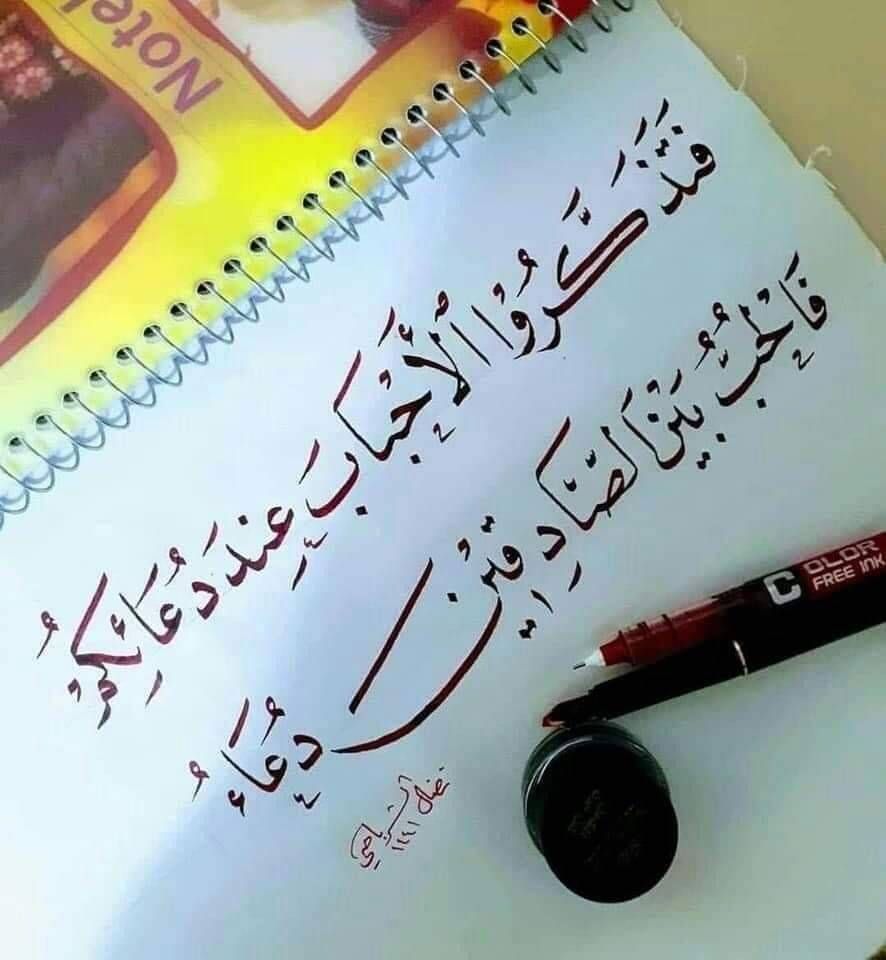 Note
فَتَذَكَّرُوا الْأَحْبَابَ عِندَ دُعَائِكُمُ
فَالْحُبُّ بَيْنَ الصَّادِقِينَ دُعَاءُ
نضال
١٤٤١
COLOR
FREE INK